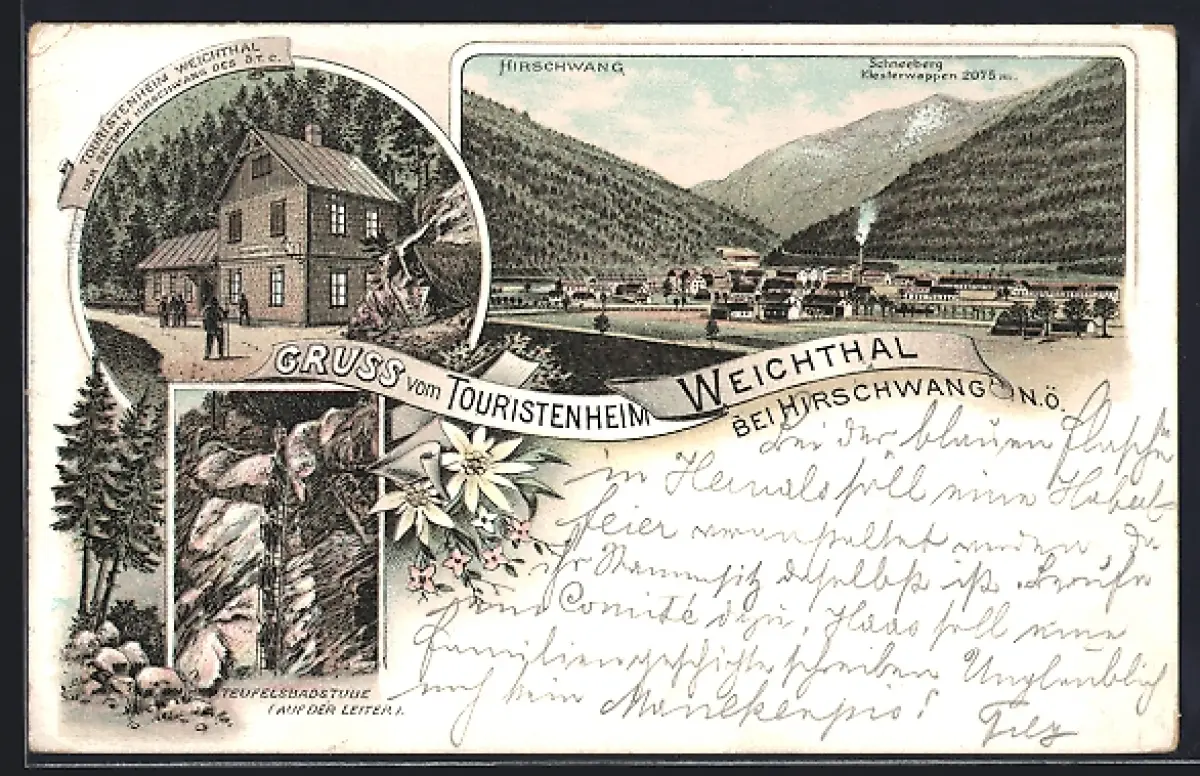 TOURISTENHEIM WEICHTHAL
DER SECTION HIRSCHWANG DES Ö.T.C.
HIRSCHWANG
Schneeberg
Klosterwappen 2075 m.
GRUSS vom TOURISTENHEIM WEICHTHAL
BEI HIRSCHWANG N.Ö.
TEUFELSBADSTUBE
(AUF DER LEITER).
bei der blauen Flasche
in Hernals soll eine
feier veranstaltet werden da
ihr Stammsitz daselbst ist. Berufe
ein Comité dazu, Haas soll eine
Familiengeschichte schreiben Unglaublich
noch kein Manekenpis!